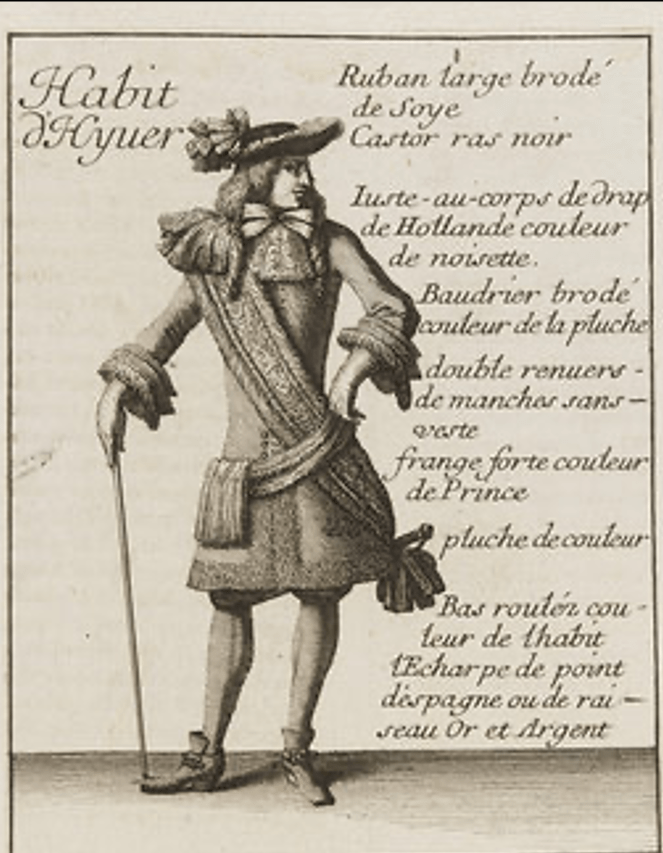 Habit
d'Hyuer
Ruban large brodé
de soye
Castor ras noir
Iuste-au-corps de drap
de Hollande couleur
de noisette.
Baudrier brodé
couleur de la pluche
double renuers -
de manches sans -
veste
frange forte couleur
de Prince
pluche de couleur
Bas rouléz cou -
leur de lhabit
lEcharpe de point
déspagne ou de rai -
seau Or et Argent